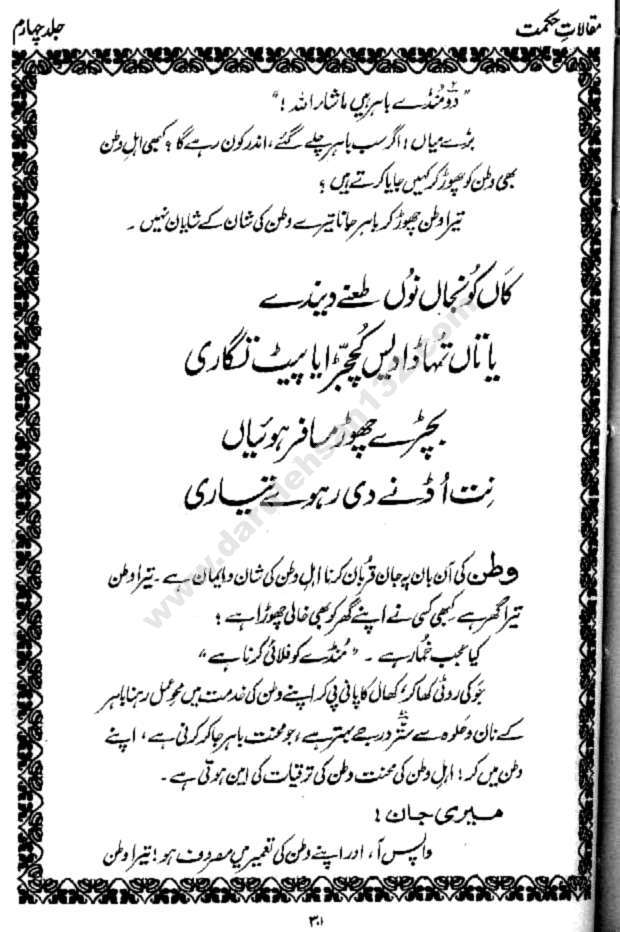 مقالاتِ حکمت
جلد چہارم
"دو مُنڈے باہر ہیں ماشاء اللہ !"
بڑے میاں ! اگر سب باہر چلے گئے، اندر کون رہے گا ؟ کبھی اہلِ وطن
بھی وطن کو چھوڑ کر کہیں جایا کرتے ہیں ؟
تیرا وطن چھوڑ کر باہر جانا تیرے وطن کی شان کے شایان نہیں ۔
کاں کُونجاں نُوں طعنے دیندے
یا تاں تُہاڈا دیس کُچجڑا یا پیٹ نگاری
بچڑے چھوڑ مسافر ہوئیاں
نِت اُڈنے دی رہوے تیاری
وطن کی آن بان پہ جان قُربان کرنا اہلِ وطن کی شان و ایمان ہے ۔ تیرا وطن
تیرا گھر ہے کبھی کسی نے اپنے گھر کو بھی خالی چھوڑا ہے ؛
کیا عجب خُمار ہے ۔ "مُنڈے کو فلائی کرنا ہے"
جَو کی روٹی کھا کر، کھال کا پانی پی کر اپنے وطن کی خدمت میں محوِ عمل رہنا باہر
کے نان و حلوہ سے ستر درجے بہتر ہے، جو محنت باہر جا کر کرنی ہے، اپنے
وطن میں کر ! اہلِ وطن کی محنت وطن کی ترقیات کی امین ہوتی ہے ۔
میری جان !
واپس آ، اور اپنے وطن کی تعمیر میں مصروف ہو ! تیرا وطن
۳۰۱